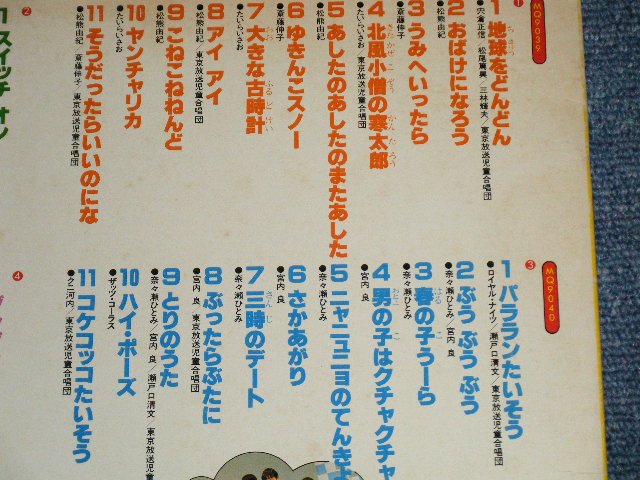 ①
MQ9039
1 地球をどんどん
●宍倉正信／松尾篤興／三林輝夫／東京放送児童合唱団
2 おばけになろう
●松熊由紀
3 うみへいったら
●斎藤伸子
4 北風小僧の寒太郎
●たいらいさお／東京放送児童合唱団
5 あしたのあしたのまたあした
●松熊由紀
6 ゆきんこスノー
●斎藤伸子
7 大きな古時計
●たいらいさお
8 アイ アイ
●松熊由紀／東京放送児童合唱団
9 こねこねねんど
●松熊由紀
10 ヤンチャリカ
●たいらいさお
11 そうだったらいいのにな
●松熊由紀 斎藤伸子／東京放送児童合唱団
②
1 スイッチ オン
③
MQ9040
1 パラランたいそう
●ロイヤル・ナイツ／瀬戸口清文／東京放送児童合唱団
2 ぶう ぶう ぶう
●奈々瀬ひとみ／宮内 良
3 春の子うーら
●奈々瀬ひとみ
4 男の子はクチャクチャ
●宮内 良
5 ニャニュニョのてんきよ
●奈々瀬ひとみ
6 さかあがり
●宮内 良
7 三時のデート
●奈々瀬ひとみ
8 ぶったらぶたに
●宮内 良 東京放送児童合唱団
9 とりのうた
●奈々瀬ひとみ／宮内 良／瀬戸口清文 東京放送児童
10 ハイ・ポーズ
●ザッツ・コーラス
11 コケコッコたいそう
●クニ河内／東京放送児童合唱団
④